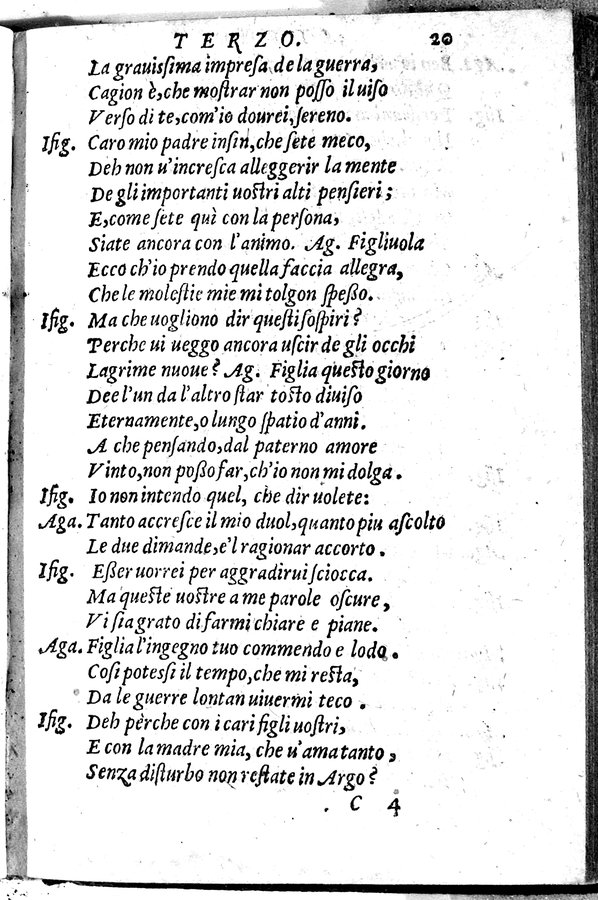 TERZO. 20
La grauissima impresa de la guerra,
Cagion è, che mostrar non posso il uiso
Verso di te, com'io dourei, sereno.
Ifig. Caro mio padre insin, che sete meco,
Deh non u'incresca alleggerir la mente
De gli importanti uostri alti pensieri;
E, come sete quì con la persona,
Siate ancora con l'animo. Ag. Figliuola
Ecco ch'io prendo quella faccia allegra,
Che le molestie mie mi tolgon spesso.
Ifig. Ma che uogliono dir questi sospiri?
Perche ui ueggo ancora uscir de gli occhi
Lagrime nuoue? Ag. Figlia questo giorno
Dee l'un da l'altro star tosto diuiso
Eternamente, o lungo spatio d'anni.
A che pensando, dal paterno amore
Vinto, non posso far, ch'io non mi dolga.
Ifig. Io non intendo quel, che dir uolete:
Aga. Tanto accresce il mio duol, quanto piu ascolto
Le due dimande, e'l ragionar accorto.
Ifig. Esser uorrei per aggradirui sciocca.
Ma queste uostre a me parole oscure,
Vi sia grato di farmi chiare e piane.
Aga. Figlia l'ingegno tuo commendo e lodo.
Cosi potessi il tempo, che mi resta,
Da le guerre lontan uiuermi teco.
Ifig. Deh perche con i cari figli uostri,
E con la madre mia, che u'ama tanto,
Senza disturbo non restate in Argo?
C 4